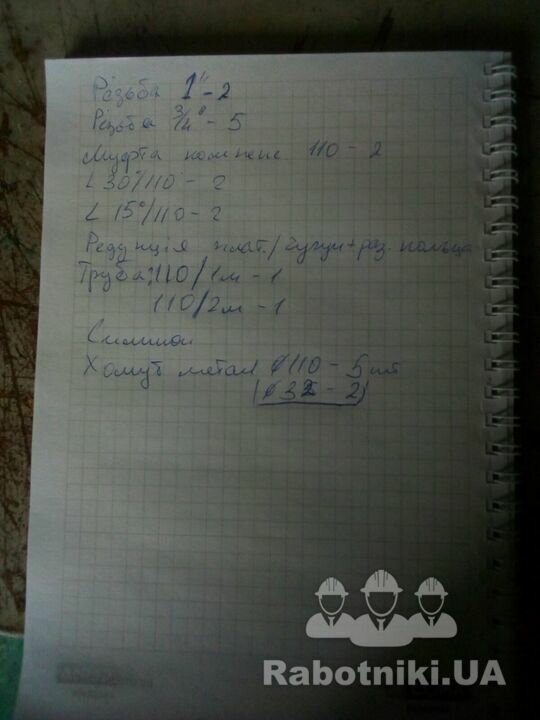 Різьба 1" - 2
Різьба 3/4" - 5
Муфта компенс. 110 - 2
∠ 30°/110 - 2
∠ 15°/110 - 2
Редукція плат./чугун + рез. кольца
Труба: 110/1м - 1
110/2м - 1
Силикон
Хомут метал ∅110 - 5шт
(∅32 - 2)
Rabotniki.UA